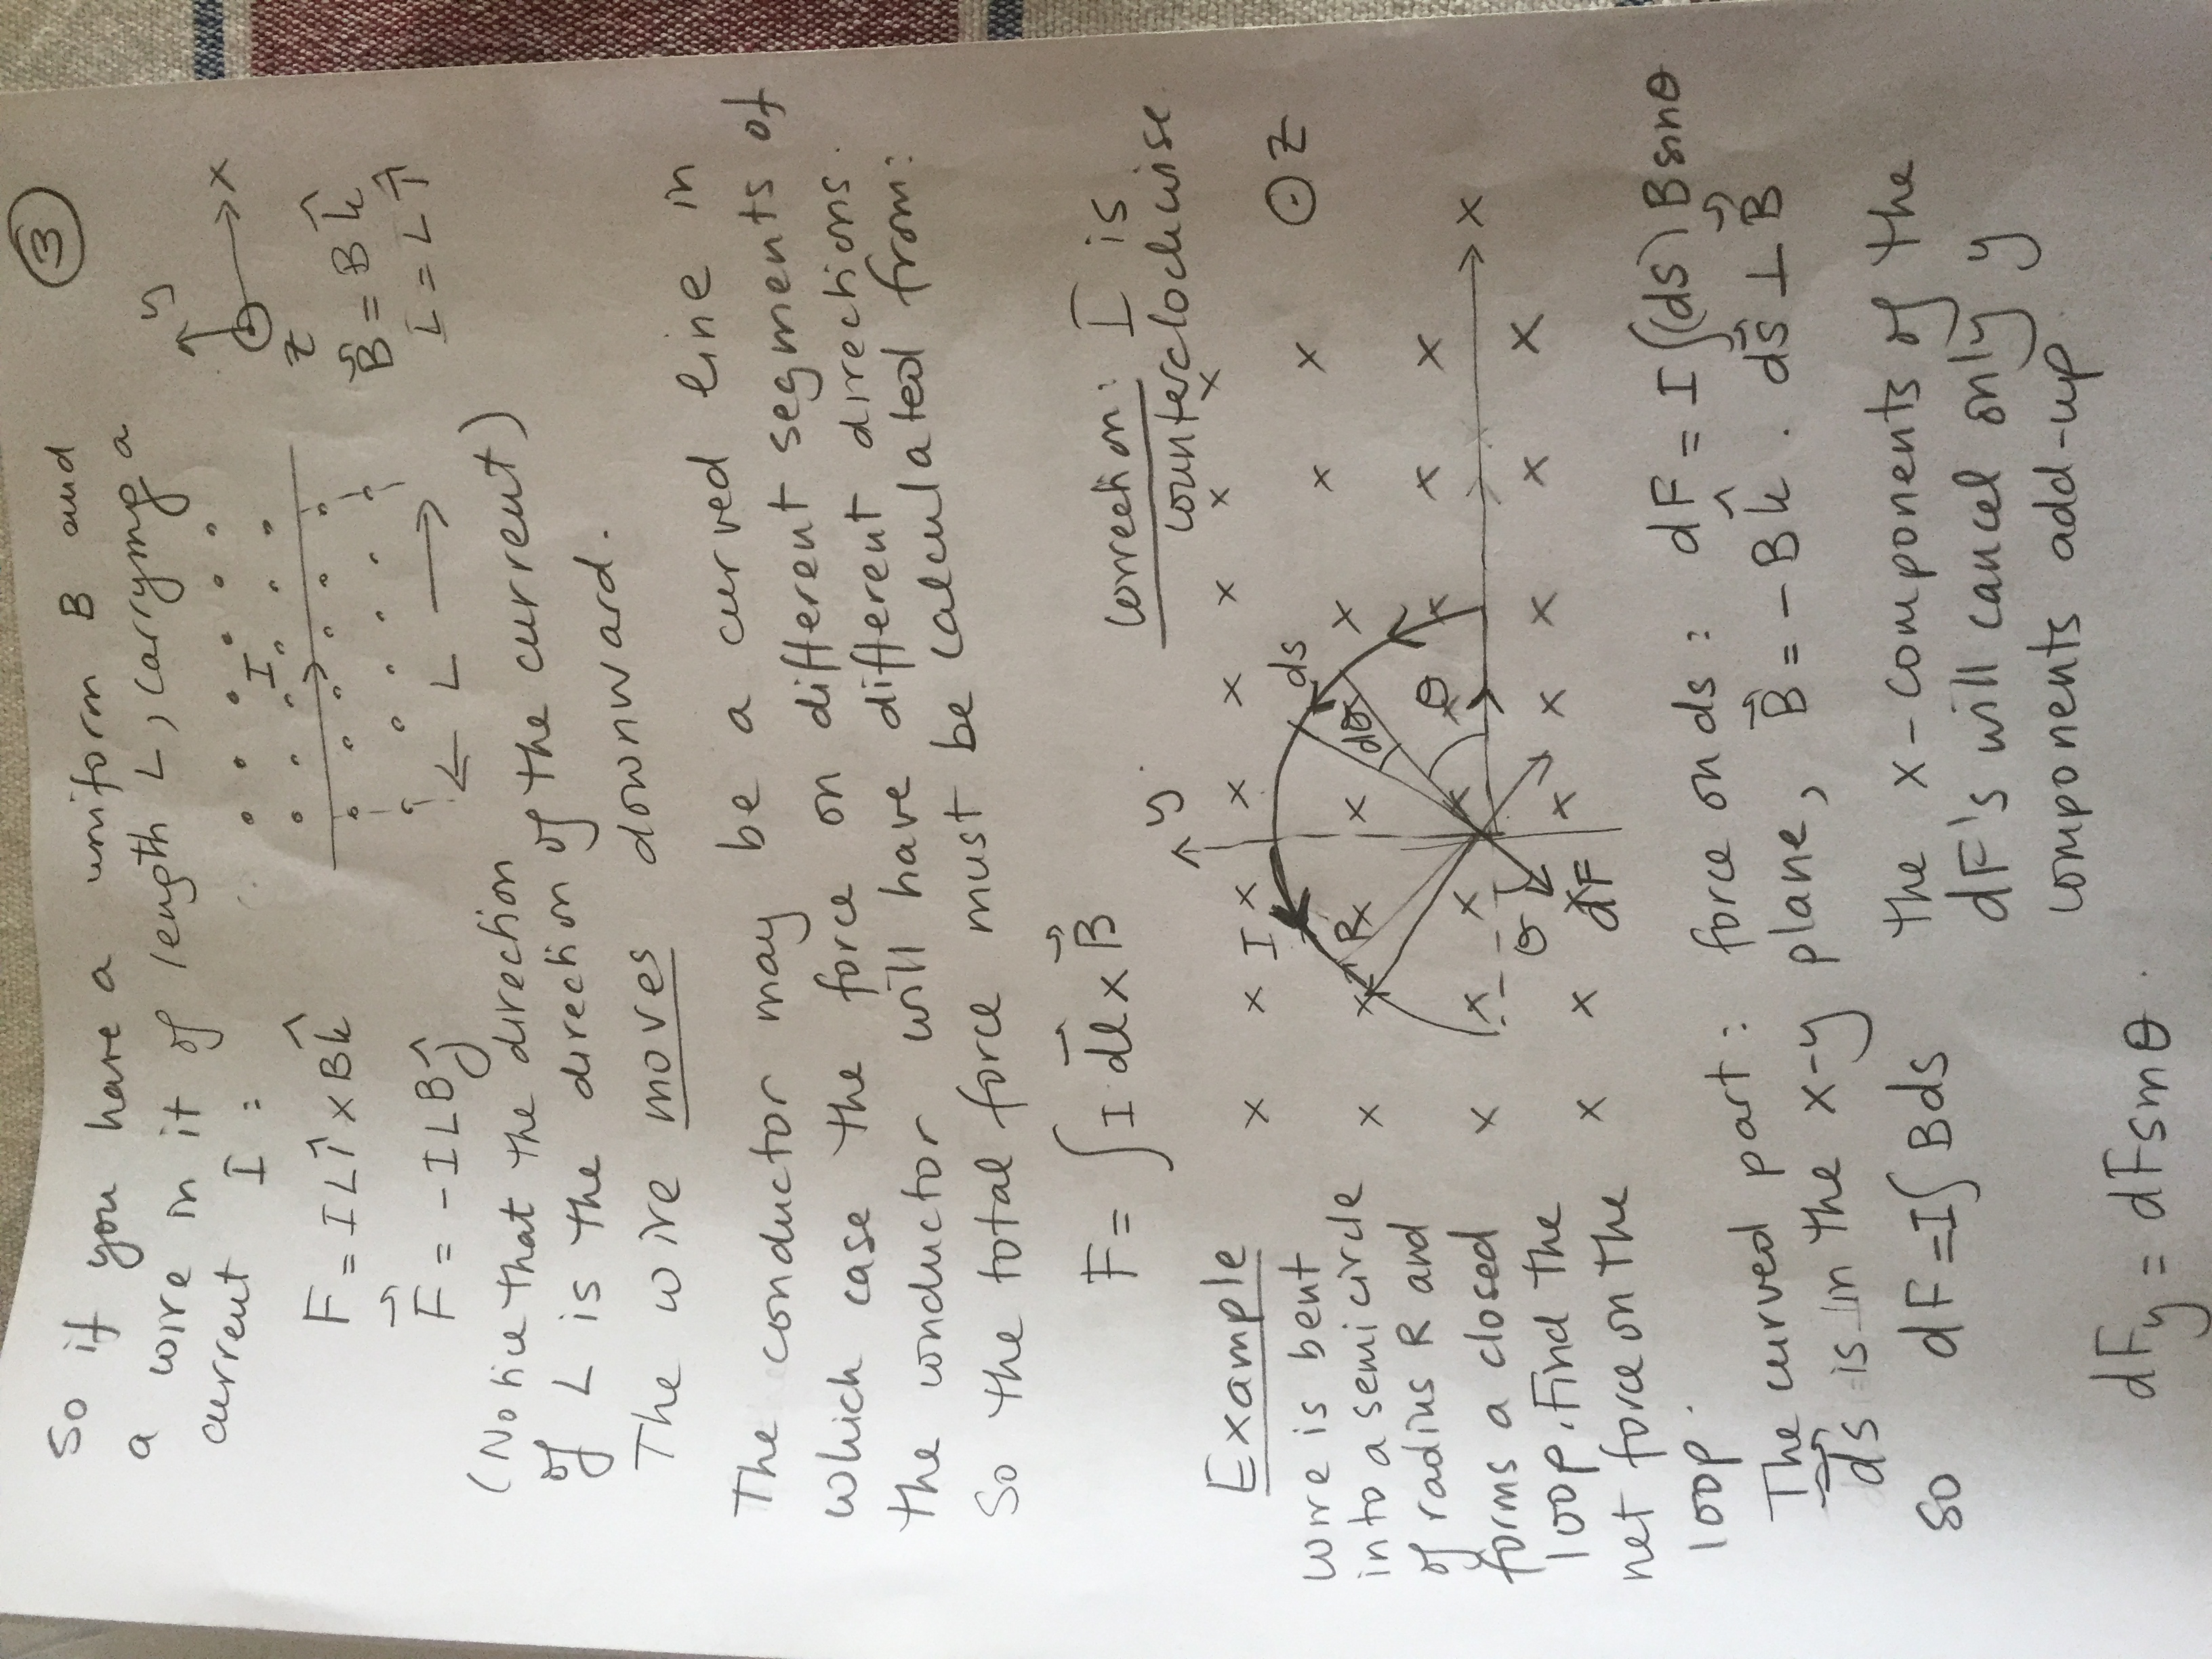 ③
So if you have a uniform B and
a wire in it of length L, carrying a
current I :
F = ILî × Bk̂
F⃗ = -ILBĵ
I
← L →
y
x
z
B⃗ = Bk̂
L = Lî
(Notice that the direction
of L is the direction of the current)
The wire moves downward.
The conductor may be a curved line in
which case the force on different segments of
the conductor will have different directions.
So the total force must be calculated from:
F = ∫ I d⃗l × B⃗
Correction: I is
counterclockwise
Example
wire is bent
into a semicircle
of radius R and
forms a closed
loop. Find the
net force on the
loop.
y
I
ds
R
dθ
θ
x
θ
dF
⊙ z
The curved part: force on ds : dF = I ∫(ds) B sinθ
d⃗s is in the x-y plane, B⃗ = -Bk̂ . d⃗s ⊥ B⃗
so dF = I∫ Bds
the x-components of the
dF's will cancel only y
components add-up.
dFy = dF sinθ.